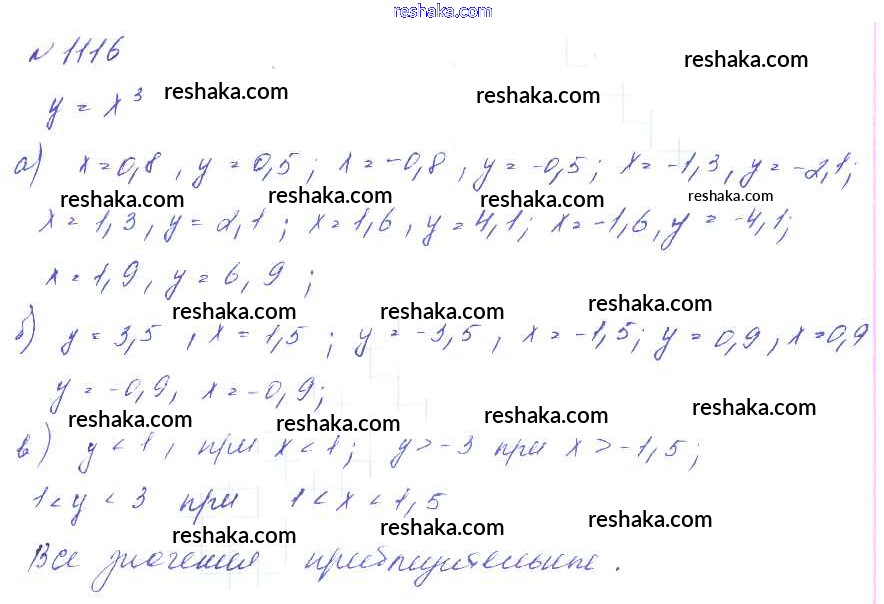 reshaka.com
№ 1116
reshaka.com
y = x³ reshaka.com reshaka.com
а) x = 0,8, y = 0,5; x = -0,8, y = -0,5; x = -1,3, y = -2,1;
reshaka.com reshaka.com reshaka.com reshaka.com
x = 1,3, y = 2,1; x = 1,6, y = 4,1; x = -1,6, y = -4,1;
x = 1,9, y = 6,9;
reshaka.com reshaka.com reshaka.com
б) y = 3,5, x = 1,5; y = -3,5, x = -1,5; y = 0,9, x = 0,9
y = -0,9, x = -0,9;
reshaka.com reshaka.com reshaka.com reshaka.com
в) y < 1, при x < 1; y > -3 при x > -1,5;
1 < y < 3 при 1 < x < 1,5
reshaka.com reshaka.com reshaka.com
Все значения приблизительные.